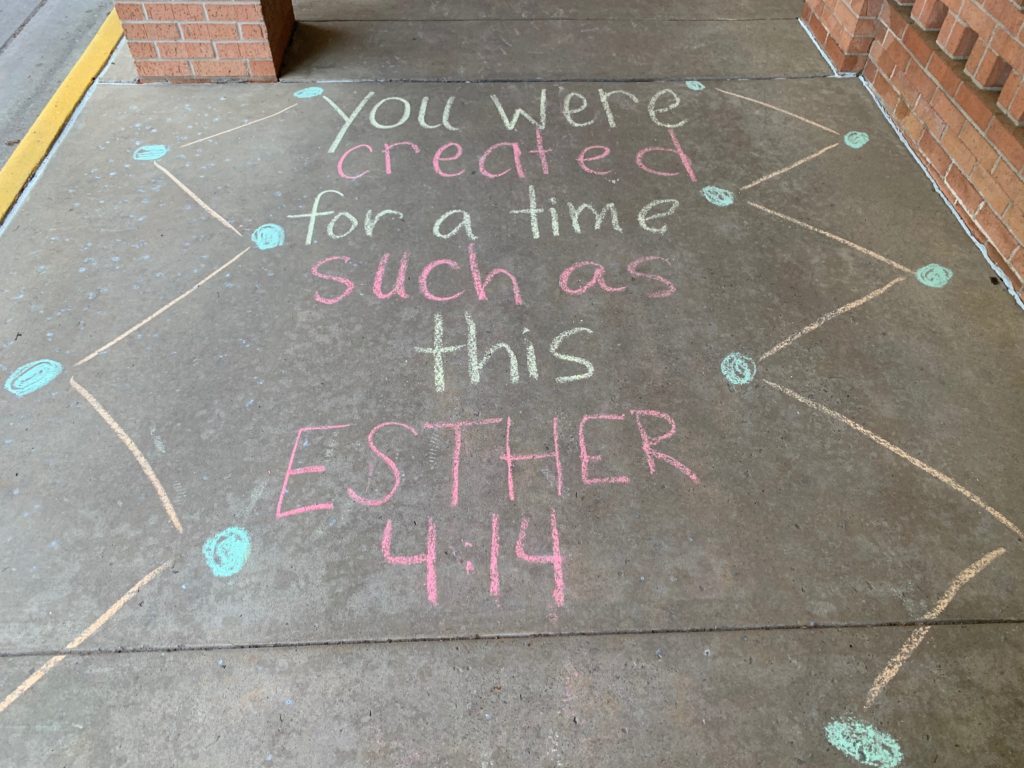 you were
created
for a time
such as
this
ESTHER
4:14